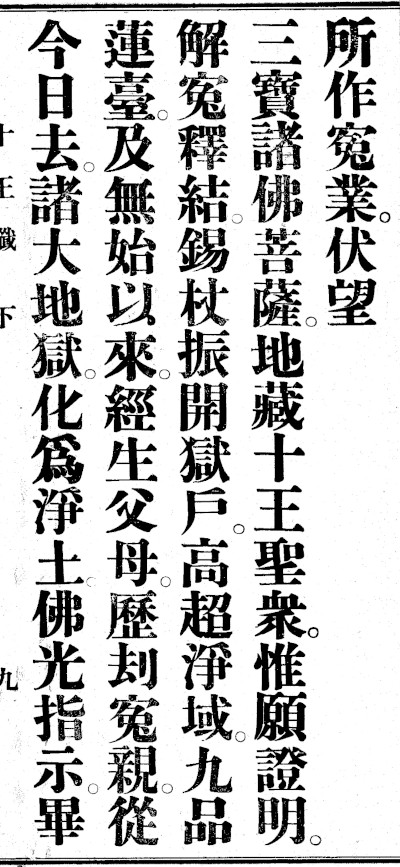 所作冤業。伏望
三寶諸佛菩薩。地藏十王聖衆。惟願證明。
解冤釋結。錫杖振開獄戶。高超淨域。九品
蓮臺。及無始以來。經生父母。歷刦冤親。從
今日去。諸大地獄。化爲淨土。佛光指示。畢
十王懺下 九